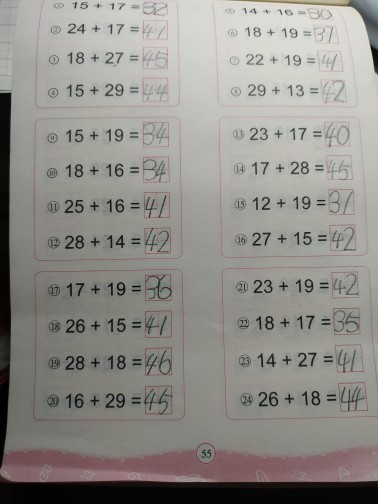 ① 15 + 17 = 32
② 24 + 17 = 41
③ 18 + 27 = 45
④ 15 + 29 = 44
⑤ 14 + 16 = 30
⑥ 18 + 19 = 37
⑦ 22 + 19 = 41
⑧ 29 + 13 = 42
⑨ 15 + 19 = 34
⑩ 18 + 16 = 34
⑪ 25 + 16 = 41
⑫ 28 + 14 = 42
⑬ 23 + 17 = 40
⑭ 17 + 28 = 45
⑮ 12 + 19 = 31
⑯ 27 + 15 = 42
⑰ 17 + 19 = 36
⑱ 26 + 15 = 41
⑲ 28 + 18 = 46
⑳ 16 + 29 = 45
㉑ 23 + 19 = 42
㉒ 18 + 17 = 35
㉓ 14 + 27 = 41
㉔ 26 + 18 = 44
55